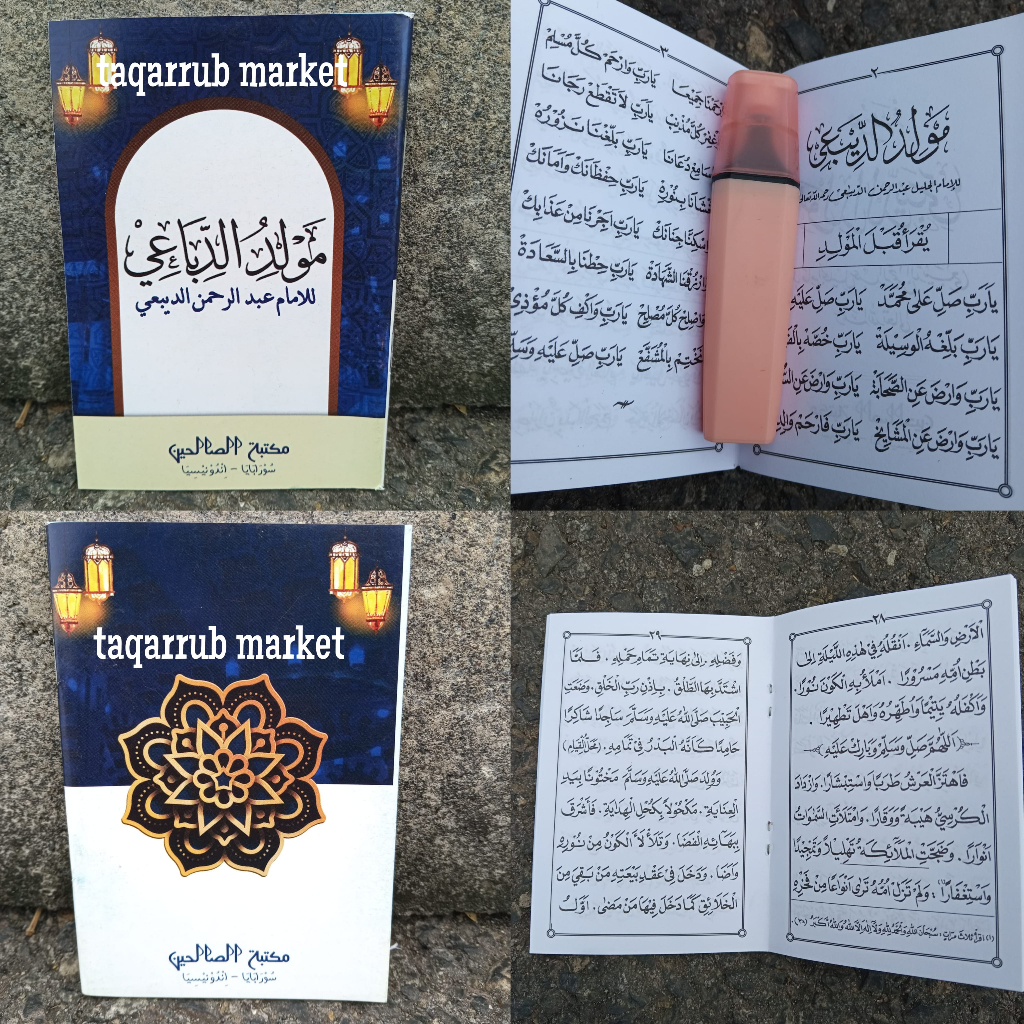 taqarrub market
مَوْلِدُ الدِّبَاعِيْ
للامام عبد الرحمن الديبعي
مكتبة الصالحين
سُوْرَابَايَا - اِنْدُوْنِيْسِيَا
٢
مَوْلِدُ الدِّيْبَعِيْ
للامام الجليل عبد الرحمن الديبعي رحمه الله تعالى
يُقْرَأُ قَبْلَ الْمَوْلِدِ
يَارَبِّ صَلِّ عَلَى مُحَمَّدْ يَارَبِّ صَلِّ عَلَيْهِ
يَارَبِّ بَلِّغْهُ الْوَسِيْلَةْ يَارَبِّ خُصَّهْ
يَارَبِّ وَارْضَ عَنِ الصَّحَابَةْ يَارَبِّ وَارْضَ عَنِ
يَارَبِّ وَارْضَ عَنِ الْمَشَايِخْ يَارَبِّ فَارْحَمْ
٣
جَمِيْعًا يَارَبِّ وَارْحَمْ كُلَّ مُسْلِمْ
كُلِّ مُذْنِبْ يَارَبِّ لَا تَقْطَعْ رَجَانَا
دُعَانَا يَارَبِّ بَلِّغْنَا نَزُوْرُهْ
بِنُوْرِهْ يَارَبِّ حِفْظَانَكْ وَاَمَانَكْ
جِنَانَكْ يَارَبِّ اَجِرْنَا مِنْ عَذَابِكْ
الشَّهَادَةْ يَارَبِّ حِطْنَا بِالسَّعَادَةْ
كُلَّ مُصْلِحْ يَارَبِّ وَاكْفِ كُلَّ مُؤْذِيْ
بِالْمُشَفَّعْ يَارَبِّ صَلِّ عَلَيْهِ وَسَلِّمْ
taqarrub market
مكتبة الصالحين
سُوْرَابَايَا - اِنْدُوْنِيْسِيَا
٢٨
الْاَرْضِ وَالسَّمَاءِ . اَنْقُلُهُ فِيْ هٰذِهِ اللَّيْلَةِ اِلٰى
بَطْنِ اُمِّهِ مَسْرُوْرًا . اَمْلَأُ بِهِ الْكَوْنَ نُوْرًا .
وَاَكْفُلُهُ يَتِيْمًا وَاُطَهِّرُهُ وَاَهْلَهُ تَطْهِيْرًا .
اَللّٰهُمَّ صَلِّ وَسَلِّمْ وَبَارِكْ عَلَيْهِ
فَاهْتَزَّ الْعَرْشُ طَرَبًا وَاسْتِبْشَارًا . وَازْدَادَ
الْكُرْسِيُّ هَيْبَةً وَوَقَارًا . وَامْتَلَأَتِ السَّمٰوَاتُ
اَنْوَارًا . وَضَجَّتِ الْمَلَائِكَةُ تَهْلِيْلًا وَتَمْجِيْدًا
وَاسْتِغْفَارًا (١) . وَلَمْ تَزَلْ اُمُّهُ تَرٰى اَنْوَاعًا مِنْ فَخْرِهِ
(١) اقرأ ثلاث مرات : سُبْحَانَ اللهِ وَالْحَمْدُ لِلّٰهِ وَلَا اِلٰهَ اِلَّا اللهُ وَاللهُ اَكْبَرُ (٣×)
٢٩
وَفَضْلِهِ . اِلٰى نِهَايَةِ تَمَامِ حَمْلِهِ . فَلَمَّا
اشْتَدَّ بِهَا الطَّلْقُ . بِاِذْنِ رَبِّ الْخَلْقِ . وَضَعَتِ
الْحَبِيْبَ صَلَّى اللهُ عَلَيْهِ وَسَلَّمَ سَاجِدًا شَاكِرًا
حَامِدًا كَاَنَّهُ الْبَدْرُ فِيْ تَمَامِهِ . (مَحَلُّ الْقِيَامِ)
وَوُلِدَ صَلَّى اللهُ عَلَيْهِ وَسَلَّمَ مَخْتُوْنًا بِيَدِ
الْعِنَايَةِ . مَكْحُوْلًا بِكُحْلِ الْهِدَايَةِ . فَاَشْرَقَ
بِبَهَائِهِ الْفَضَا . وَتَلَأْلَأَ الْكَوْنُ مِنْ نُوْرِهِ
وَاَضَا . وَدَخَلَ فِيْ عَقْدِ بَيْعَتِهِ مَنْ بَقِيَ مِنَ
الْخَلَائِقِ كَمَا دَخَلَ فِيْهَا مَنْ مَضٰى . اَوَّلُ